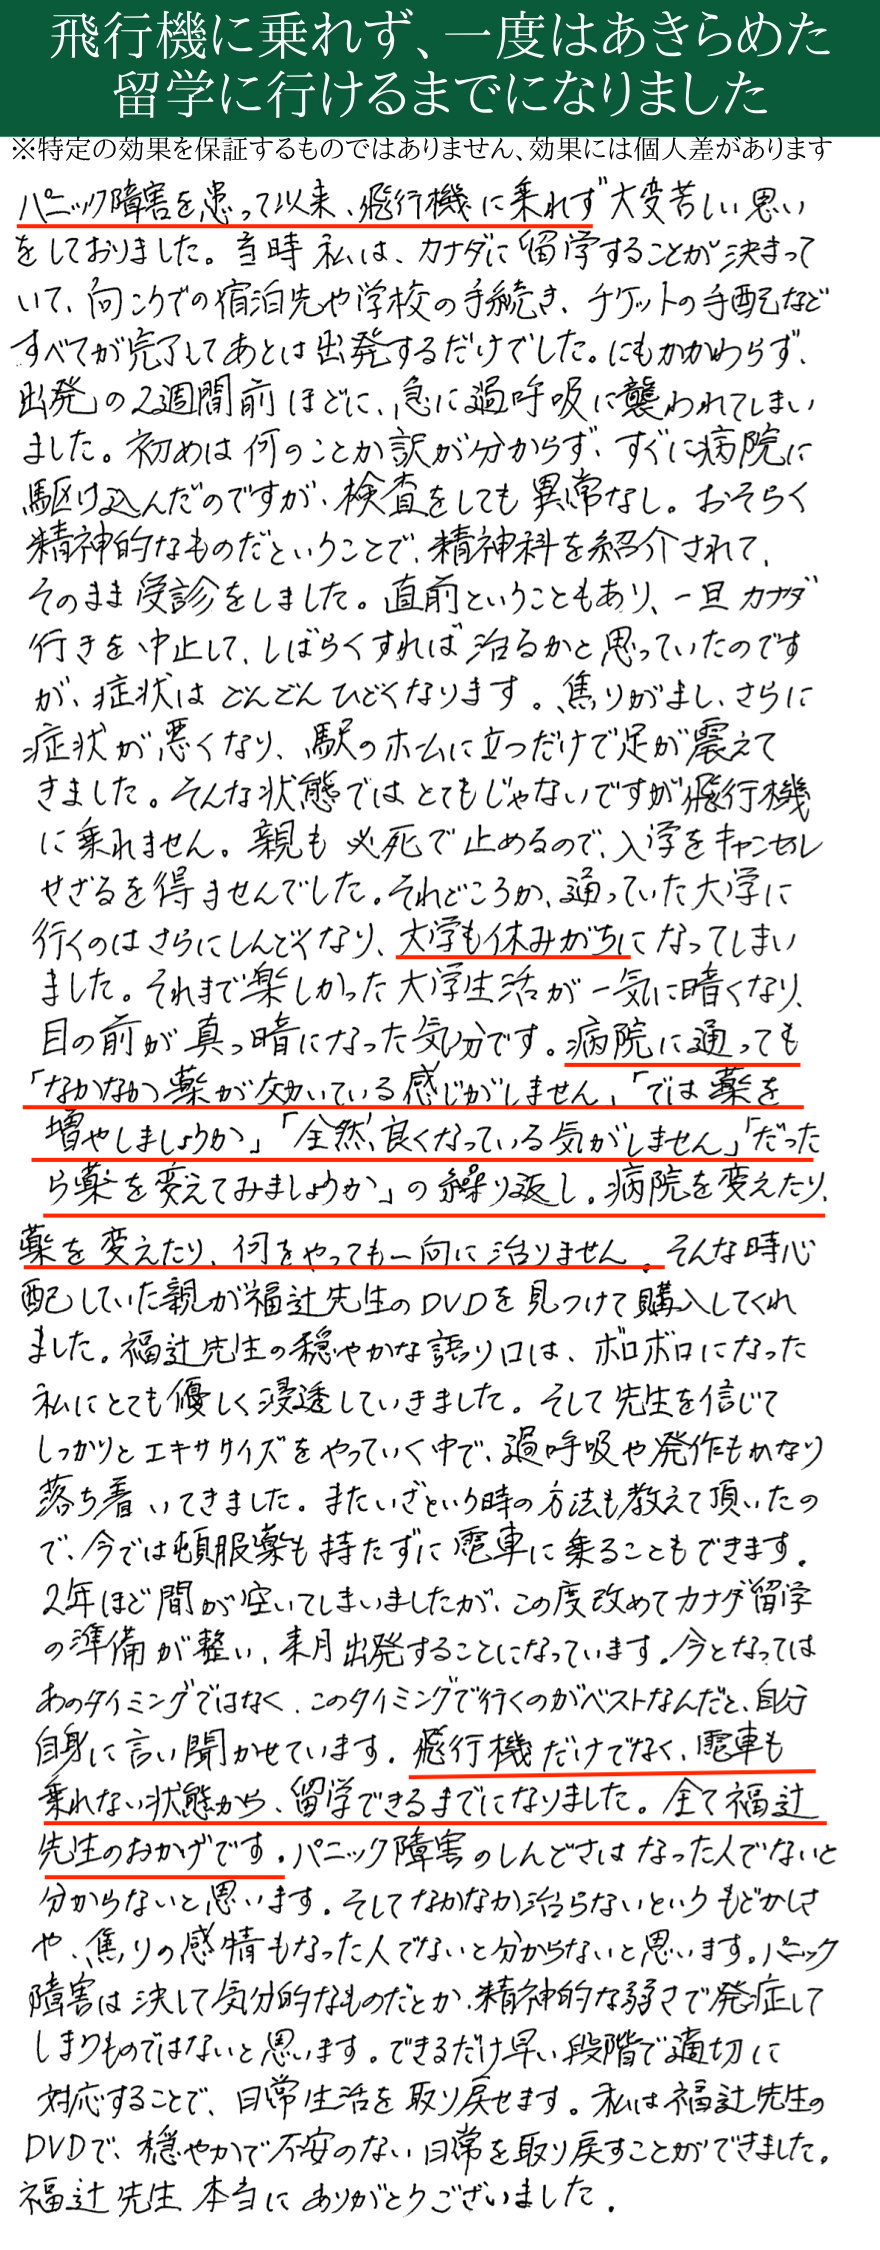 飛行機に乗れず、一度はあきらめた
留学に行けるまでになりました
※特定の効果を保証するものではありません、効果には個人差があります
パニック障害を患って以来、飛行機に乗れず大変苦しい思い
をしておりました。当時私は、カナダに留学することが決まって
いて、向こうでの宿泊先や学校の手続き、チケットの手配など
すべてが完了してあとは出発するだけでした。にもかかわらず、
出発の2週間前ほどに、急に過呼吸に襲われてしまい
ました。初めは何のことか訳が分からず、すぐに病院に
駆け込んだのですが、検査をしても異常なし。おそらく
精神的なものだということで、精神科を紹介されて、
そのまま受診をしました。直前ということもあり、一旦カナダ
行きを中止して、しばらくすれば治るかと思っていたのです
が、症状はどんどんひどくなります。焦りがまし、さらに
症状が悪くなり、駅のホームに立つだけで足が震えて
きました。そんな状態ではとてもじゃないですが飛行機
に乗れません。親も必死で止めるので、入学をキャンセル
せざるを得ませんでした。それどころか、通っていた大学に
行くのはさらにしんどくなり、大学も休みがちになってしまい
ました。それまで楽しかった大学生活が一気に暗くなり、
目の前が真っ暗になった気分です。病院に通っても
「なかなか薬が効いている感じがしません」「では薬を
増やしましょうか」「全然、良くなっている気がしません」「だった
ら薬を変えてみましょうか」の繰り返し。病院を変えたり、
薬を変えたり、何をやっても一向に治りません。そんな時心
配していた親が福辻先生のDVDを見つけて購入してくれ
ました。福辻先生の穏やかな語り口は、ボロボロになった
私にとても優しく浸透していきました。そして先生を信じて
しっかりとエキササイズをやっていく中で、過呼吸や発作もかなり
落ち着いてきました。またいざという時の方法も教えて頂いたの
で、今では頓服薬も持たずに電車に乗ることもできます。
2年ほど間が空いてしまいましたが、この度改めてカナダ留学
の準備が整い、来月出発することになっています。今となっては
あのタイミングではなく、このタイミングで行くのがベストなんだと、自分
自身に言い聞かせています。飛行機だけでなく、電車も
乗れない状態から、留学できるまでになりました。全て福辻
先生のおかげです。パニック障害のしんどさはなった人でないと
分からないと思います。そしてなかなか治らないというもどかしさ
や、焦りの感情もなった人でないと分からないと思います。パニック
障害は決して気分的なものだとか、精神的な弱さで発症して
しまうものではないと思います。できるだけ早い段階で適切に
対応することで、日常生活を取り戻せます。私は福辻先生の
DVDで、穏やかで不安のない日常を取り戻すことができました。
福辻先生本当にありがとうございました。